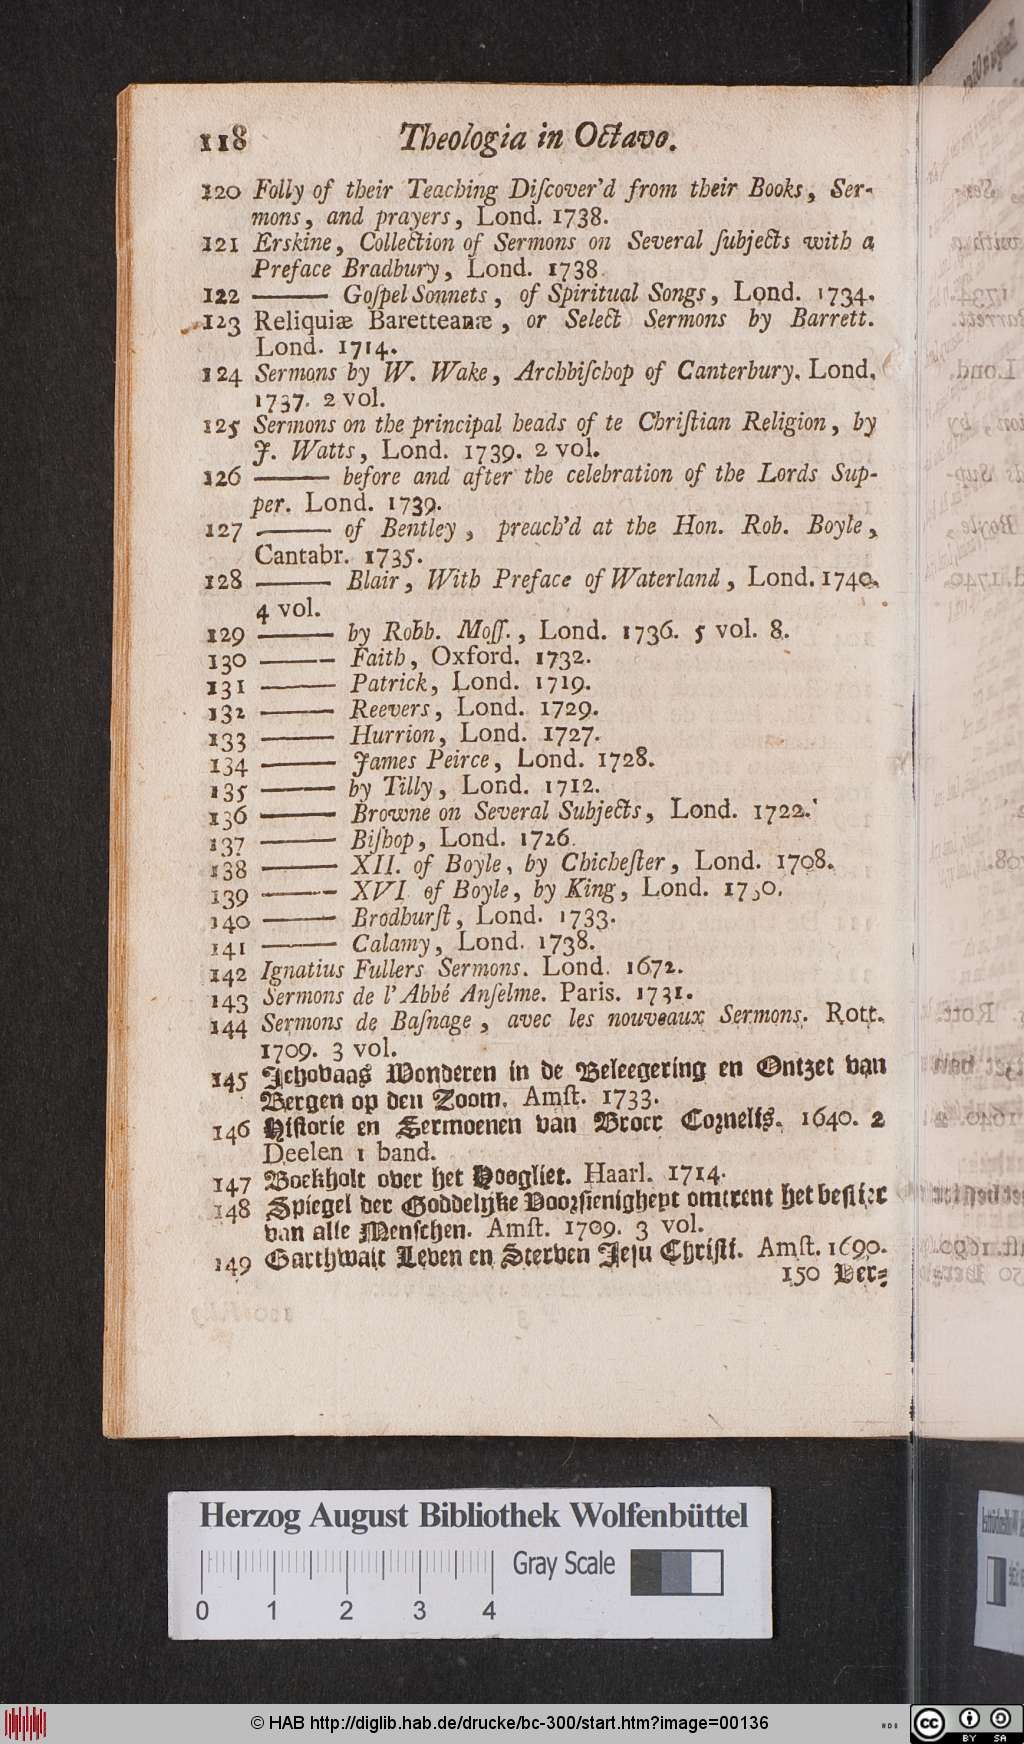 118 Theologia in Octavo.
120 Folly of their Teaching Diſcover'd from their Books, Ser-
mons, and prayers, Lond. 1738.
121 Erskine, Collection of Sermons on Several ſubjects with a
Preface Bradbury, Lond. 1738.
122 ——— Goſpel Sonnets, of Spiritual Songs, Lond. 1734.
123 Reliquiæ Baretteanæ, or Select Sermons by Barrett.
Lond. 1714.
124 Sermons by W. Wake, Archbiſchop of Canterbury. Lond.
1737. 2 vol.
125 Sermons on the principal heads of te Chriſtian Religion, by
J. Watts, Lond. 1739. 2 vol.
126 ——— before and after the celebration of the Lords Sup-
per. Lond. 1739.
127 ——— of Bentley, preach'd at the Hon. Rob. Boyle,
Cantabr. 1735.
128 ——— Blair, With Preface of Waterland, Lond. 1740.
4 vol.
129 ——— by Robb. Moſſ., Lond. 1736. 5 vol. 8.
130 ——— Faith, Oxford. 1732.
131 ——— Patrick, Lond. 1719.
132 ——— Reevers, Lond. 1729.
133 ——— Hurrion, Lond. 1727.
134 ——— James Peirce, Lond. 1728.
135 ——— by Tilly, Lond. 1712.
136 ——— Browne on Several Subjects, Lond. 1722.
137 ——— Biſhop, Lond. 1726.
138 ——— XII. of Boyle, by Chicheſter, Lond. 1708.
139 ——— XVI of Boyle, by King, Lond. 1730.
140 ——— Brodhurſt, Lond. 1733.
141 ——— Calamy, Lond. 1738.
142 Ignatius Fullers Sermons. Lond. 1672.
143 Sermons de l'Abbé Anſelme. Paris. 1731.
144 Sermons de Baſnage, avec les nouveaux Sermons. Rott.
1709. 3 vol.
145 Jehovaas Wonderen in de Beleegering en Ontzet van
Bergen op den Zoom. Amſt. 1733.
146 Hiſtorie en Sermoenen van Broer Cornelis. 1640. 2
Deelen 1 band.
147 Boekholt over het Hoogliet. Haarl. 1714.
148 Spiegel der Goddelyke Voorſienigheyt omtrent het beſtier
van alle Menſchen. Amſt. 1709. 3 vol.
149 Garthwait Leven en Sterven Jeſu Chriſti. Amſt. 1690.
150 Ver-
Herzog August Bibliothek Wolfenbüttel
Gray Scale
0 1 2 3 4
© HAB http://diglib.hab.de/drucke/bc-300/start.htm?image=00136
cc BY SA